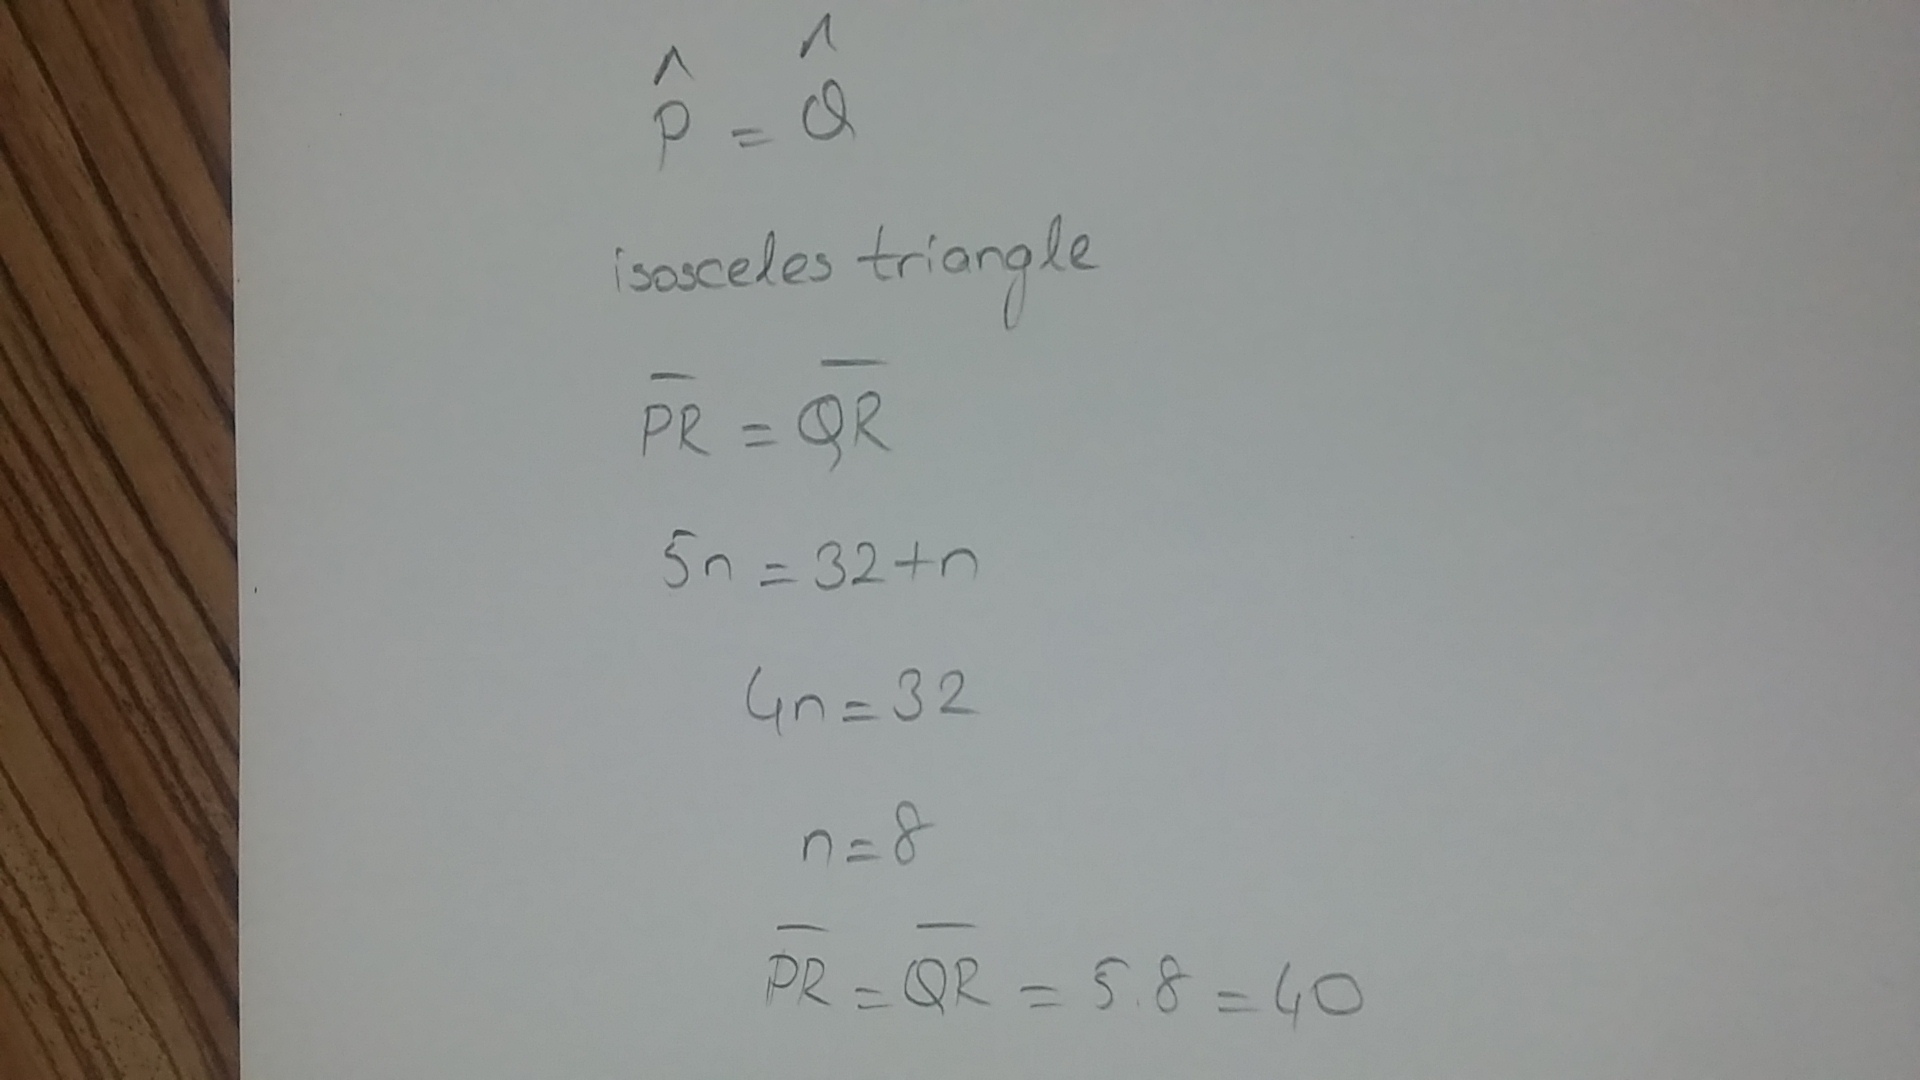 P̂ = Q̂
isosceles triangle
P̅R̅ = Q̅R̅
5n = 32+n
4n = 32
n = 8
P̅R̅ = Q̅R̅ = 5.8 = 40